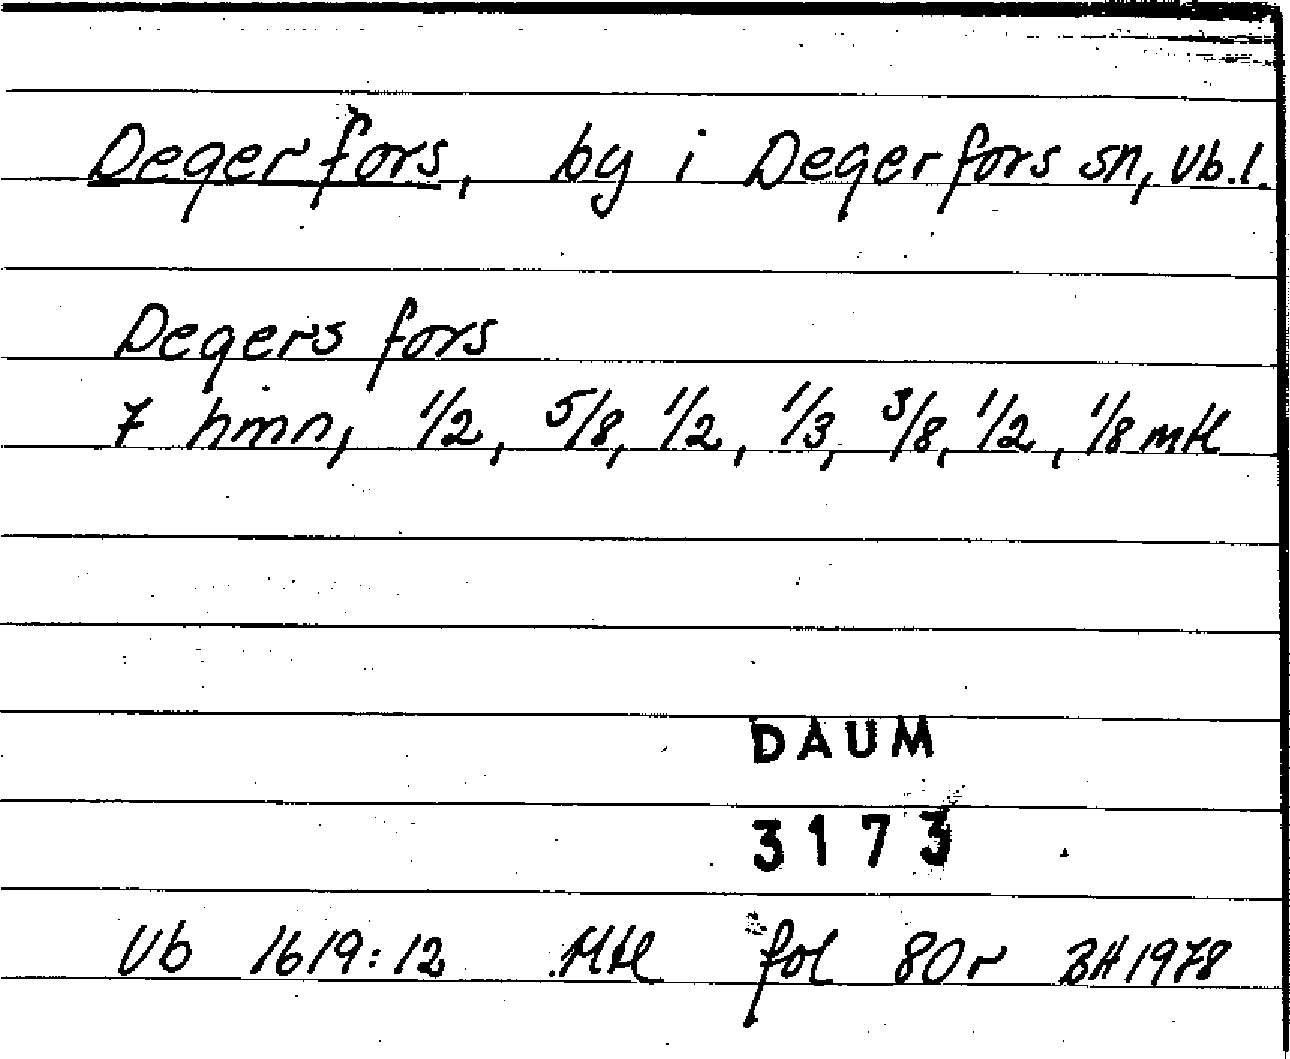 Degerfors, by i Degerfors sn, Vb.l.
Degers fors
7 hmn, 1/2, 5/8, 1/2, 1/3, 3/8, 1/2, 1/8 mtl
DAUM
3173
Vb 1619:12 Mtl fol 80r BH 1978